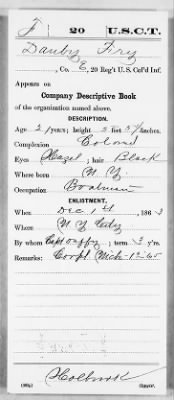 F 20 U.S.C.T.
Danby Fry
, Co. E, 20 Reg't U.S. Col'd Inf.
Appears on
Company Descriptive Book
of the organization named above.
DESCRIPTION.
Age years; height 5 feet inches.
Complexion Colored
Eyes Hazel; hair Black
Where born N. Y.
Occupation Boatman
ENLISTMENT.
When Dec 1st, 186 3
Where N Y City
By whom Capt; term 3 y'rs.
Remarks:
Holbrook
Copyist.